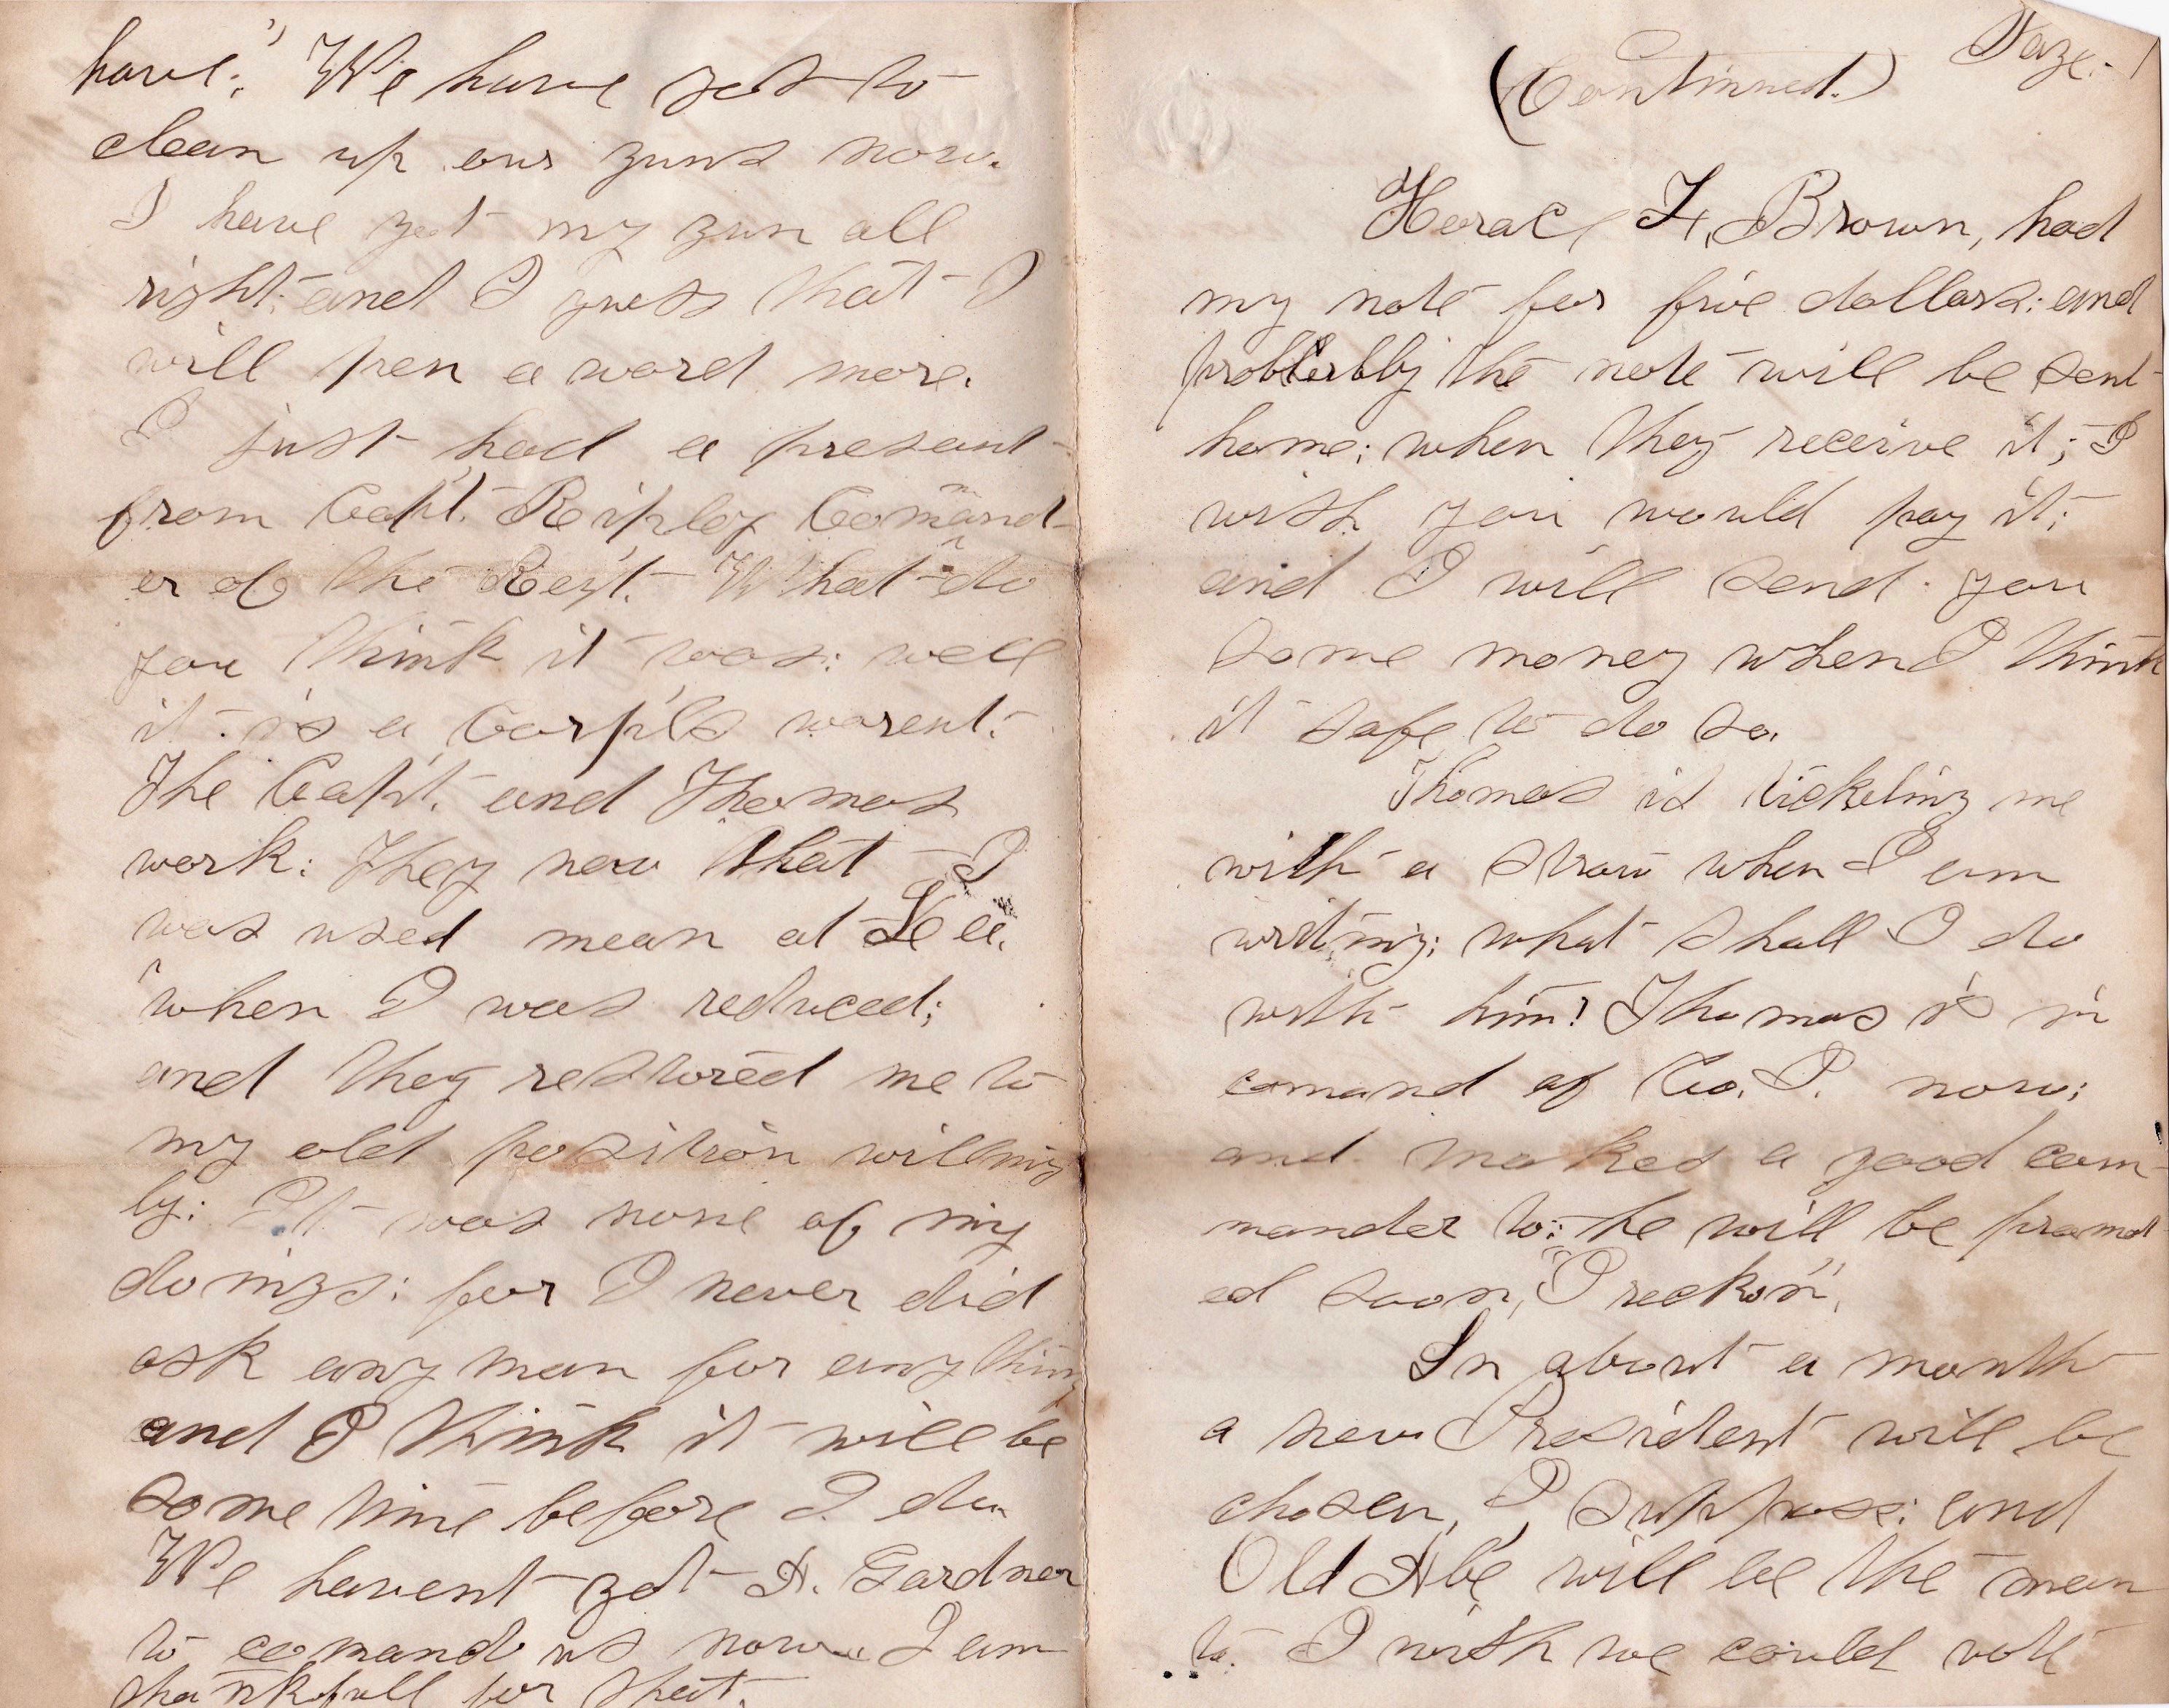 have." We have got to
clean up our guns now.
I have got my gun all
right; and I guess that I
will pen a word more.
I just had a presant
from Capt. Reipley Comand-
er of the Regt. What do
you think it was: well
it is a Corp'ls warent.
The Capt. and Thomas
work: They now that I
was used mean at
when I was reduced;
and they restored me to
my old position willing
ly: It was none of my
doings: for I never did
ask any man for any thing
and I think it will be
some time before I do.
We havent got A. Gardner
to comand us now. I am
thankfull for that.
(Continued.) Page. 1
Horace H. Brown, had
my note for five dollars: and
probberbly the note will be sent
home: when they receive it; I
wish you would pay it;
and I will send you
some money when I think
it safe to do so.
Thomas is tickeling me
with a straw when I am
writing; what shall I do
with him! Thomas is in
comand of Co. I. now;
and makes a good com-
mander to: he will be promot-
ed soon, "I reckon",
In about a month
a new President will be
chosen, I suppose: and
Old Abe will be the man
to. I wish we could vote